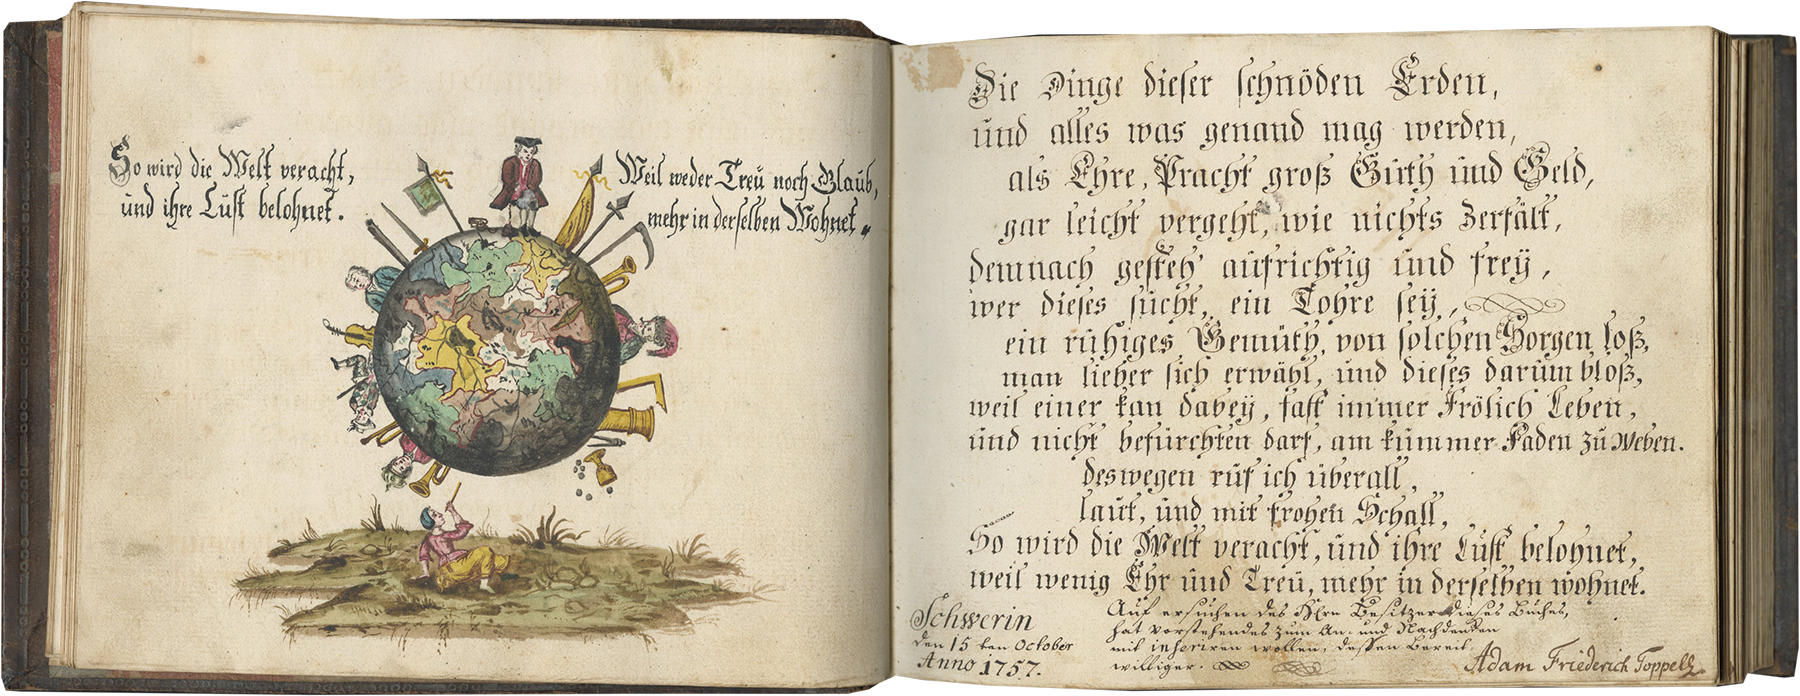 So wird die Welt veracht,
und ihre Lust belohnet.
Weil weder Treü noch Glaub,
mehr in derselben Wohnet.
Die Dinge dieser schnöden Erden,
und alles was genand mag werden,
als Ehre, Pracht groß Güth und Geld,
gar leicht vergeht, wie nichts zerfält,
demnach gesteh' aufrichtig und freÿ,
wer dieses sücht, ein Tohre seÿ,
ein rühiges Gemüth, von solchen Sorgen loß,
man lieber sich erwähl, und dieses darüm bloß,
weil einer kan dabeÿ, fast immer Frölich Leben,
und nicht befürchten darf, am kummer-Faden zü Weben.
deswegen rüf ich überall,
laut, und mit frohen Schall,
So wird die Welt veracht, und ihre Lüst belohnet,
weil wenig Ehr und Treü, mehr in derselben wohnet.
Schwerin
den 15 ten October
Anno 1757.
Auf ersuchen des HErn Besitzers dieses Buches,
hat vorstehendes zum An- und Nachdenken
mit inseriren wollen, dessen bereit
williger.
Adam Friederich Toppell